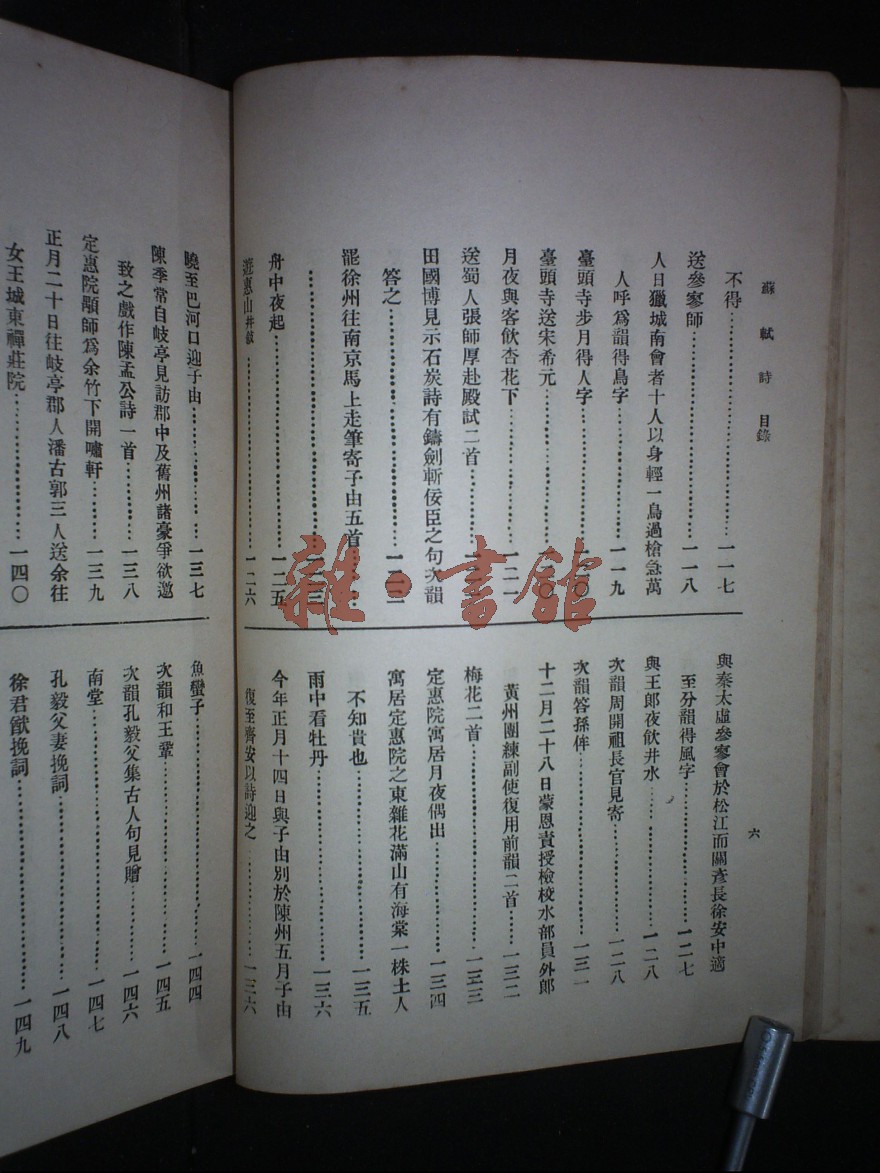 蘇軾詩 目錄
六
不得……………………一一七
送參寥師……………………一一八
人日獵城南會者十人以身輕一鳥過槍急萬
人呼爲韻得鳥字……………一一九
臺頭寺步月得人字……………一二〇
臺頭寺送宋希元……………一二〇
月夜與客飲杏花下……………一二一
送蜀人張師厚赴殿試二首………一
田國博見示石炭詩有鑄劍斬佞臣之句次韻
答之……………………一二二
罷徐州往南京馬上走筆寄子由五首……
……………………一二三
舟中夜起……………………一二五
遊惠山并敘……………………一二六
與秦太虛參寥會於松江而關彥長徐安中適
至分韻得風字……………一二七
與王郎夜飲井水……………一二八
次韻周開祖長官見寄……………一二八
次韻答孫侔……………………一三一
十二月二十八日蒙恩責授檢校水部員外郎
黃州團練副使復用前韻二首……一三二
梅花二首……………………一三三
定惠院寓居月夜偶出……………一三四
寓居定惠院之東雜花滿山有海棠一株土人
不知貴也……………………一三五
雨中看牡丹……………………一三六
今年正月十四日與子由別於陳州五月子由
復至齊安以詩迎之……………一三六
曉至巴河口迎子由……………一三七
陳季常自岐亭見訪郡中及舊州諸豪爭欲邀
致之戲作陳孟公詩一首…………一三八
定惠院顒師爲余竹下開嘯軒………一三九
正月二十日往岐亭郡人潘古郭三人送余往
女王城東禪莊院……………一四〇
魚蠻子……………………一四四
次韻和王鞏……………………一四五
次韻孔毅父集古人句見贈…………一四六
南堂……………………一四七
孔毅父妻挽詞……………………一四八
徐君猷挽詞……………………一四九
雜·書館